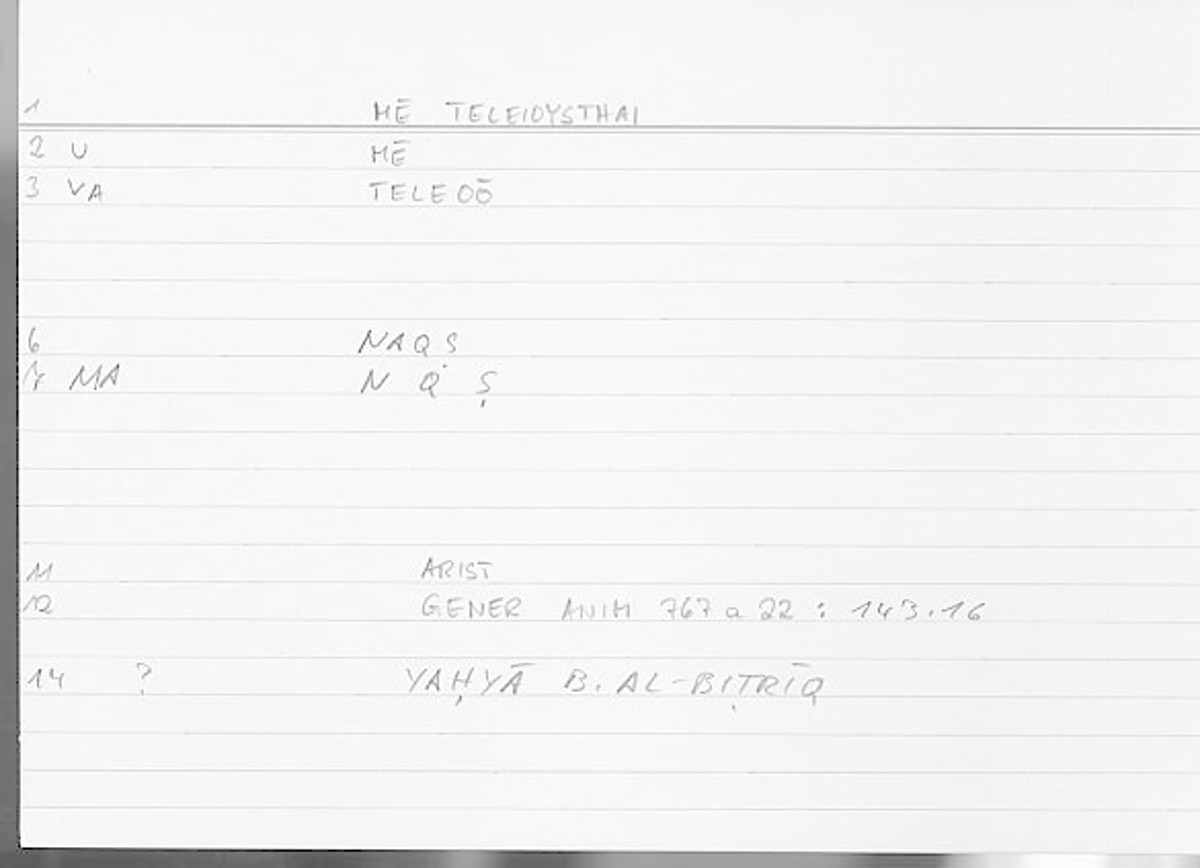 1 MĒ TELEIOYSTHAI
2 U MĒ
3 VA TELEOŌ
6 NAQS
7 MA N Q Ṣ
11 ARIST
12 GENER ANIM 767 a 22 : 143.16
14 ? YAḤYĀ B. AL-BIṬRĪQ